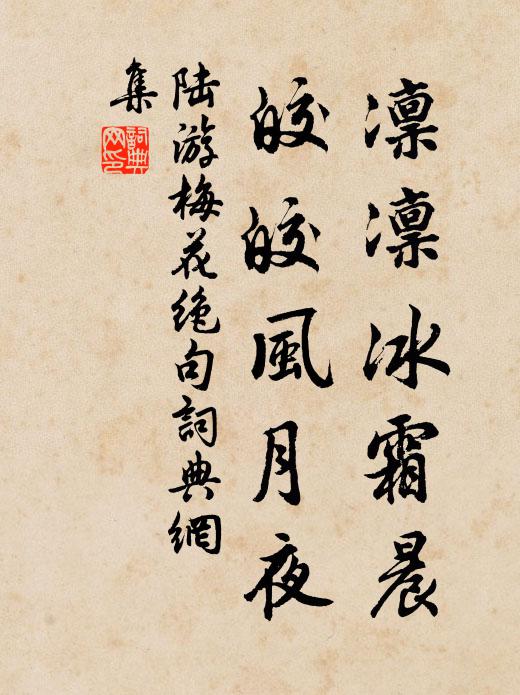 凛凛冰霜晨
皎皎風月夜
陆游梅花绝句詞典網
集
詞典
网印